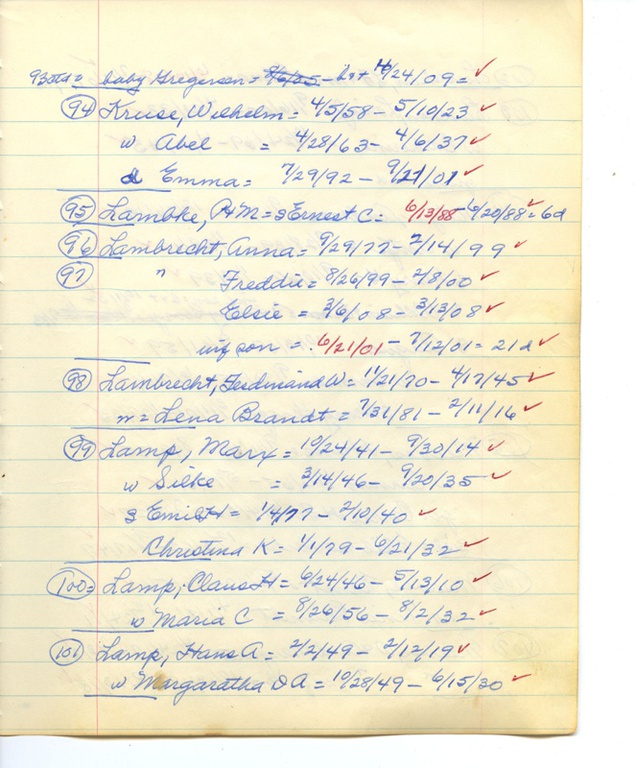 baby Gregerson = 8/6/05 - brt 10/24/09 = ✓
94 Kruse, Wilhelm = 4/5/58 - 5/10/23 ✓
w Abel = 4/28/63 - 4/6/37 ✓
d Emma = 7/29/92 - 9/21/01 ✓
95 Lambke, P.M = s Ernest C = 6/13/88 - 6/20/88 = 6d ✓
96 Lambrecht, Anna = 9/29/77 - 2/14/99 ✓
97 " Freddie = 8/26/99 - 2/8/00 ✓
Elsie = 3/6/08 - 3/13/08 ✓
inf son = 6/21/01 - 7/12/01 = 21d ✓
98 Lambrecht, Ferdinand W = 11/21/70 - 4/17/45 ✓
m = Lena Brandt = 7/31/81 - 2/11/16 ✓
99 Lamp, Marx = 10/24/41 - 9/30/14 ✓
w Silke = 3/14/46 - 9/20/35 ✓
s Emil H = 1/4/77 - 2/10/40 ✓
Christina K = 1/1/79 - 6/21/32 ✓
100 = Lamp, Claus H = 6/24/46 - 5/13/10 ✓
w Maria C = 8/26/56 - 8/2/32 ✓
101 Lamp, Hans A = 2/2/49 - 2/12/19 ✓
w Margaratha D A = 10/28/49 - 6/15/30 ✓